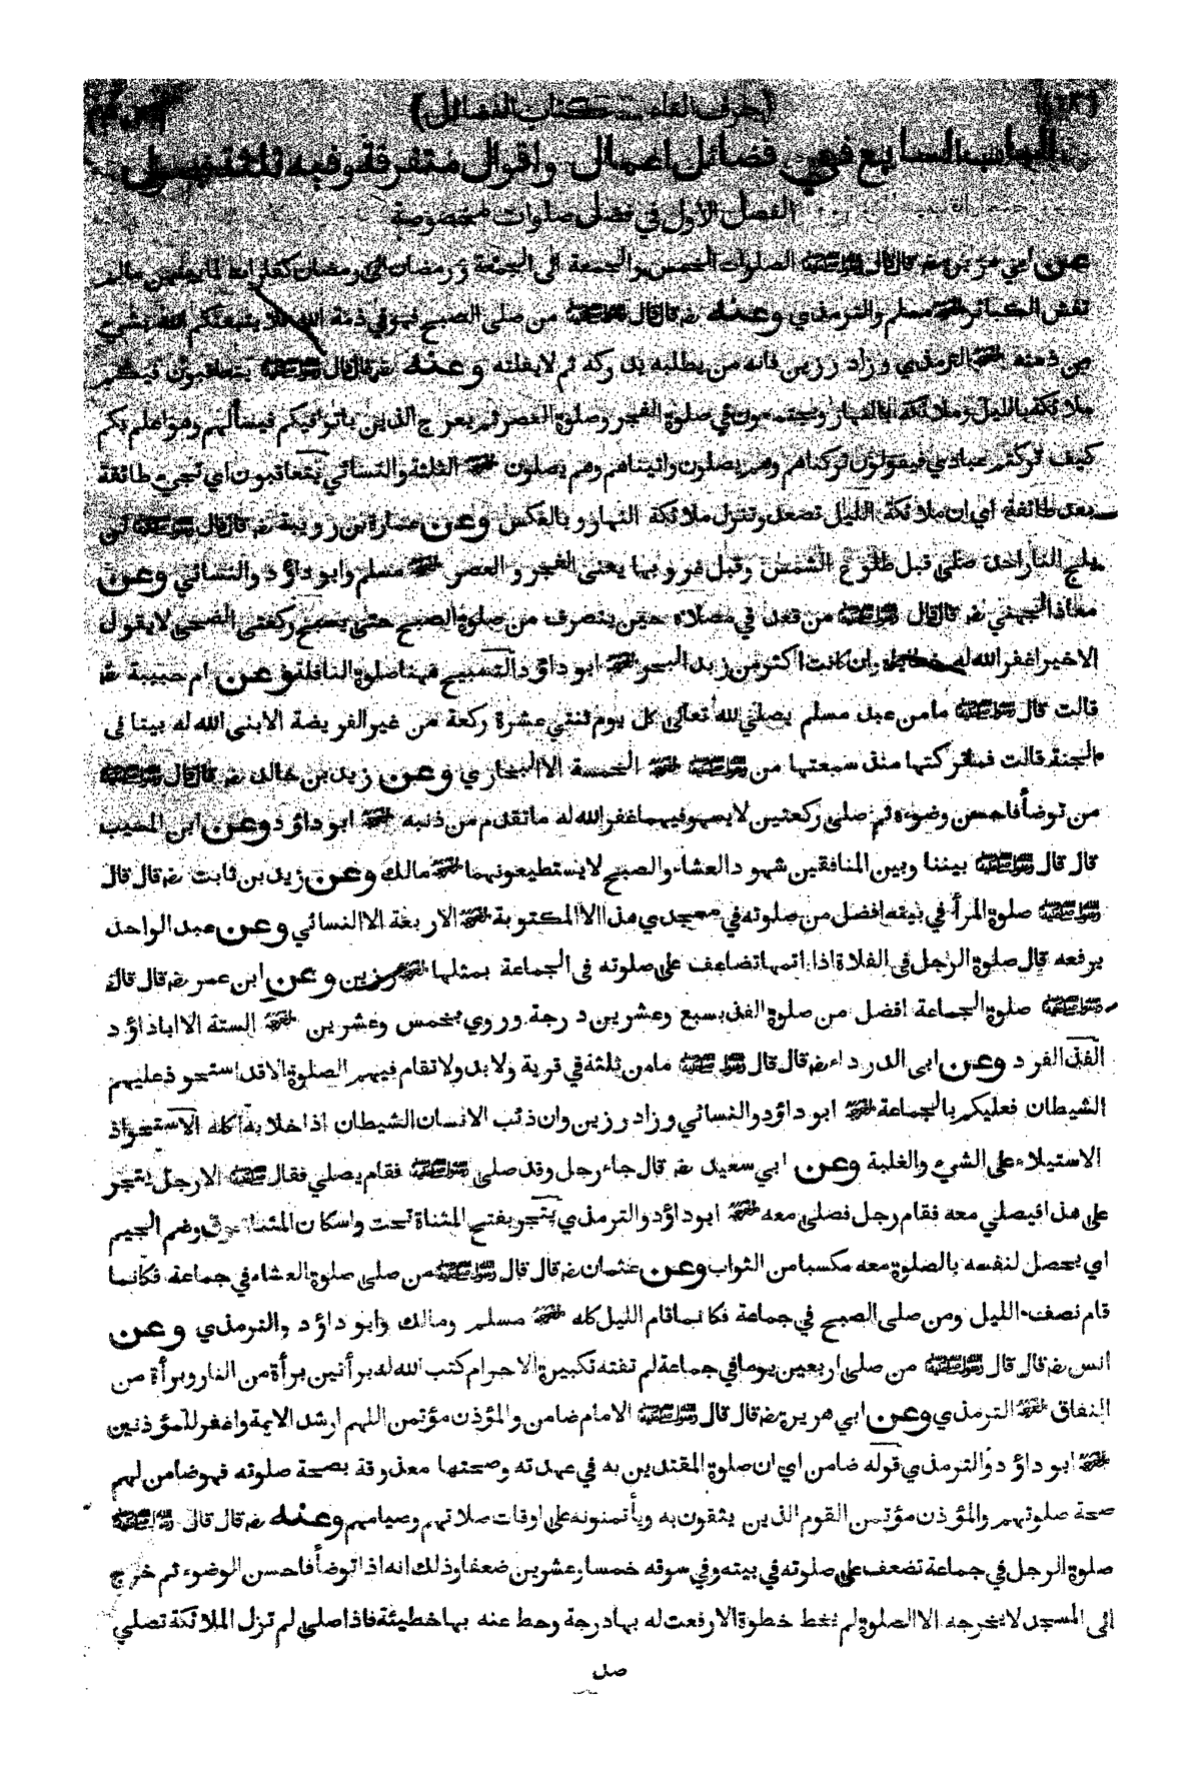 (حرف الفاء ـ كتاب الفضائل)
الباب السابع في فضائل اعمال واقوال متفرقة وفيه ثلثة فصول
الفصل الاول في فضل صلوات مخصوصة
عن ابي هريرة رضـ قال قال رسول الله صلى الله عليه وسلم الصلوات الخمس والجمعة الى الجمعة ورمضان الى رمضان كفارات لما بينهن مالم
تغش الكبائر اخرجه مسلم والترمذي وعنه رضـ قال قال رسول الله صلى الله عليه وسلم من صلى الصبح فهو في ذمة الله فلا يتبعنكم الله بشئ
من ذمته اخرجه الترمذي وزاد رزين فانه من يطلبه يدركه ثم لا يفلته وعنه رضـ قال قال رسول الله صلى الله عليه وسلم يتعاقبون فيكم
ملائكة بالليل وملائكة بالنهار ويجتمعون في صلوة الفجر وصلوة العصر ثم يعرج الذين باتوا فيكم فيسألهم وهو اعلم بكم
كيف تركتم عبادي فيقولون تركناهم وهم يصلون واتيناهم وهم يصلون اخرجه الثلثة والنسائي يتعاقبون اي تجيء طائفة
بعد طائفة اي ان ملائكة الليل تصعد وتنزل ملائكة النهار وبالعكس وعن عمارة بن رويبة رضـ قال قال رسول الله صلى الله عليه وسلم لن
يلج النار احد صلى قبل طلوع الشمس وقبل غروبها يعنى الفجر والعصر اخرجه مسلم وابو داؤد والنسائي وعن
معاذ الجهني رضـ قال قال رسول الله صلى الله عليه وسلم من قعد في مصلاه حين ينصرف من صلوة الصبح حتى يسبح ركعتى الضحى لا يقول
الا خيرا غفر الله له خطاياه وان كانت اكثر من زبد البحر اخرجه ابو داؤد والتسبيح ههنا صلوة النافلة وعن ام حبيبة رضـ
قالت قال رسول الله صلى الله عليه وسلم ما من عبد مسلم يصلي لله تعالى كل يوم ثنتي عشرة ركعة من غير الفريضة الا بنى الله له بيتا فى
الجنة قالت فما تركتها منذ سمعتها من رسول الله صلى الله عليه وسلم اخرجه الخمسة الا البخاري وعن زيد بن خالد رضـ قال قال رسول الله صلى الله عليه وسلم
من توضأ فاحسن وضوءه ثم صلى ركعتين لا يسهو فيهما غفر الله له ما تقدم من ذنبه اخرجه ابو داؤد وعن ابن المسيب
قال قال رسول الله صلى الله عليه وسلم بيننا وبين المنافقين شهود العشاء والصبح لا يستطيعونهما اخرجه مالك وعن زيد بن ثابت رضـ قال قال
رسول الله صلى الله عليه وسلم صلوة المرأ في بيته افضل من صلوته في مسجدي هذا الا المكتوبة اخرجه الاربعة الا النسائي وعن عبد الواحد
يرفعه قال صلوة الرجل فى الفلاة اذا اتمها تضاعف على صلوته فى الجماعة بمثلها اخرجه رزين وعن ابن عمر رضـ قال قال
رسول الله صلى الله عليه وسلم صلوة الجماعة افضل من صلوة الفذ بسبع وعشرين درجة وروي بخمس وعشرين اخرجه الستة الا ابا داؤد
الفذ الفرد وعن ابى الدرداء رضـ قال قال رسول الله صلى الله عليه وسلم ما من ثلثة في قرية ولا بدو لا تقام فيهم الصلوة الا قد استحوذ عليهم
الشيطان فعليكم بالجماعة اخرجه ابو داؤد والنسائي وزاد رزين وان ذئب الانسان الشيطان اذا خلا به اكله الاستحواذ
الاستيلاء على الشئ والغلبة وعن ابي سعيد رضـ قال جاء رجل وقد صلى رسول الله صلى الله عليه وسلم فقام يصلي فقال صلى الله عليه وسلم الا رجل يتجر
على هذا فيصلي معه فقام رجل فصلى معه اخرجه ابو داؤد والترمذي يتجر بفتح المثناة تحت واسكان المثناة فوق وضم الجيم
اي يحصل لنفسه بالصلوة معه مكسبا من الثواب وعن عثمان رضـ قال قال رسول الله صلى الله عليه وسلم من صلى صلوة العشاء في جماعة فكانما
قام نصف الليل ومن صلى الصبح في جماعة فكانما قام الليل كله اخرجه مسلم ومالك وابو داؤد والترمذي وعن
انس رضـ قال قال رسول الله صلى الله عليه وسلم من صلى اربعين يوما في جماعة لم تفته تكبيرة الاحرام كتب الله له برأتين برأة من النار وبرأة من
النفاق اخرجه الترمذي وعن ابي هريرة رضـ قال قال رسول الله صلى الله عليه وسلم الامام ضامن والمؤذن مؤتمن اللهم ارشد الايمة واغفر للمؤذنين
اخرجه ابو داؤد والترمذي قوله ضامن اي ان صلوة المقتدين به في عهدته وصحتها معذوقة بصحة صلوته فهو ضامن لهم
صحة صلوتهم والمؤذن مؤتمن القوم الذين يثقون به ويأتمنونه على اوقات صلاتهم وصيامهم وعنه رضـ قال قال رسول الله صلى الله عليه وسلم
صلوة الرجل في جماعة تضعف على صلوته في بيته وفي سوقه خمسا وعشرين ضعفا وذلك انه اذا توضأ فاحسن الوضوء ثم خرج
الى المسجد لا يخرجه الا الصلوة لم يخط خطوة الا رفعت له بها درجة وحط عنه بها خطيئة فاذا صلى لم تزل الملائكة تصلي
صل